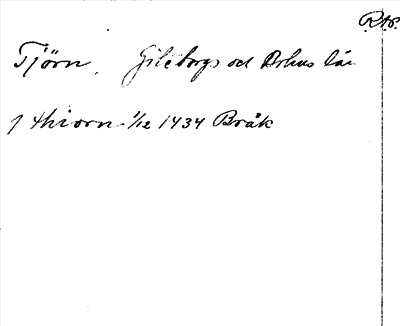 Tjörn. Göteborgs och Bohus län
j thiorn 1/12 1434 Bråk